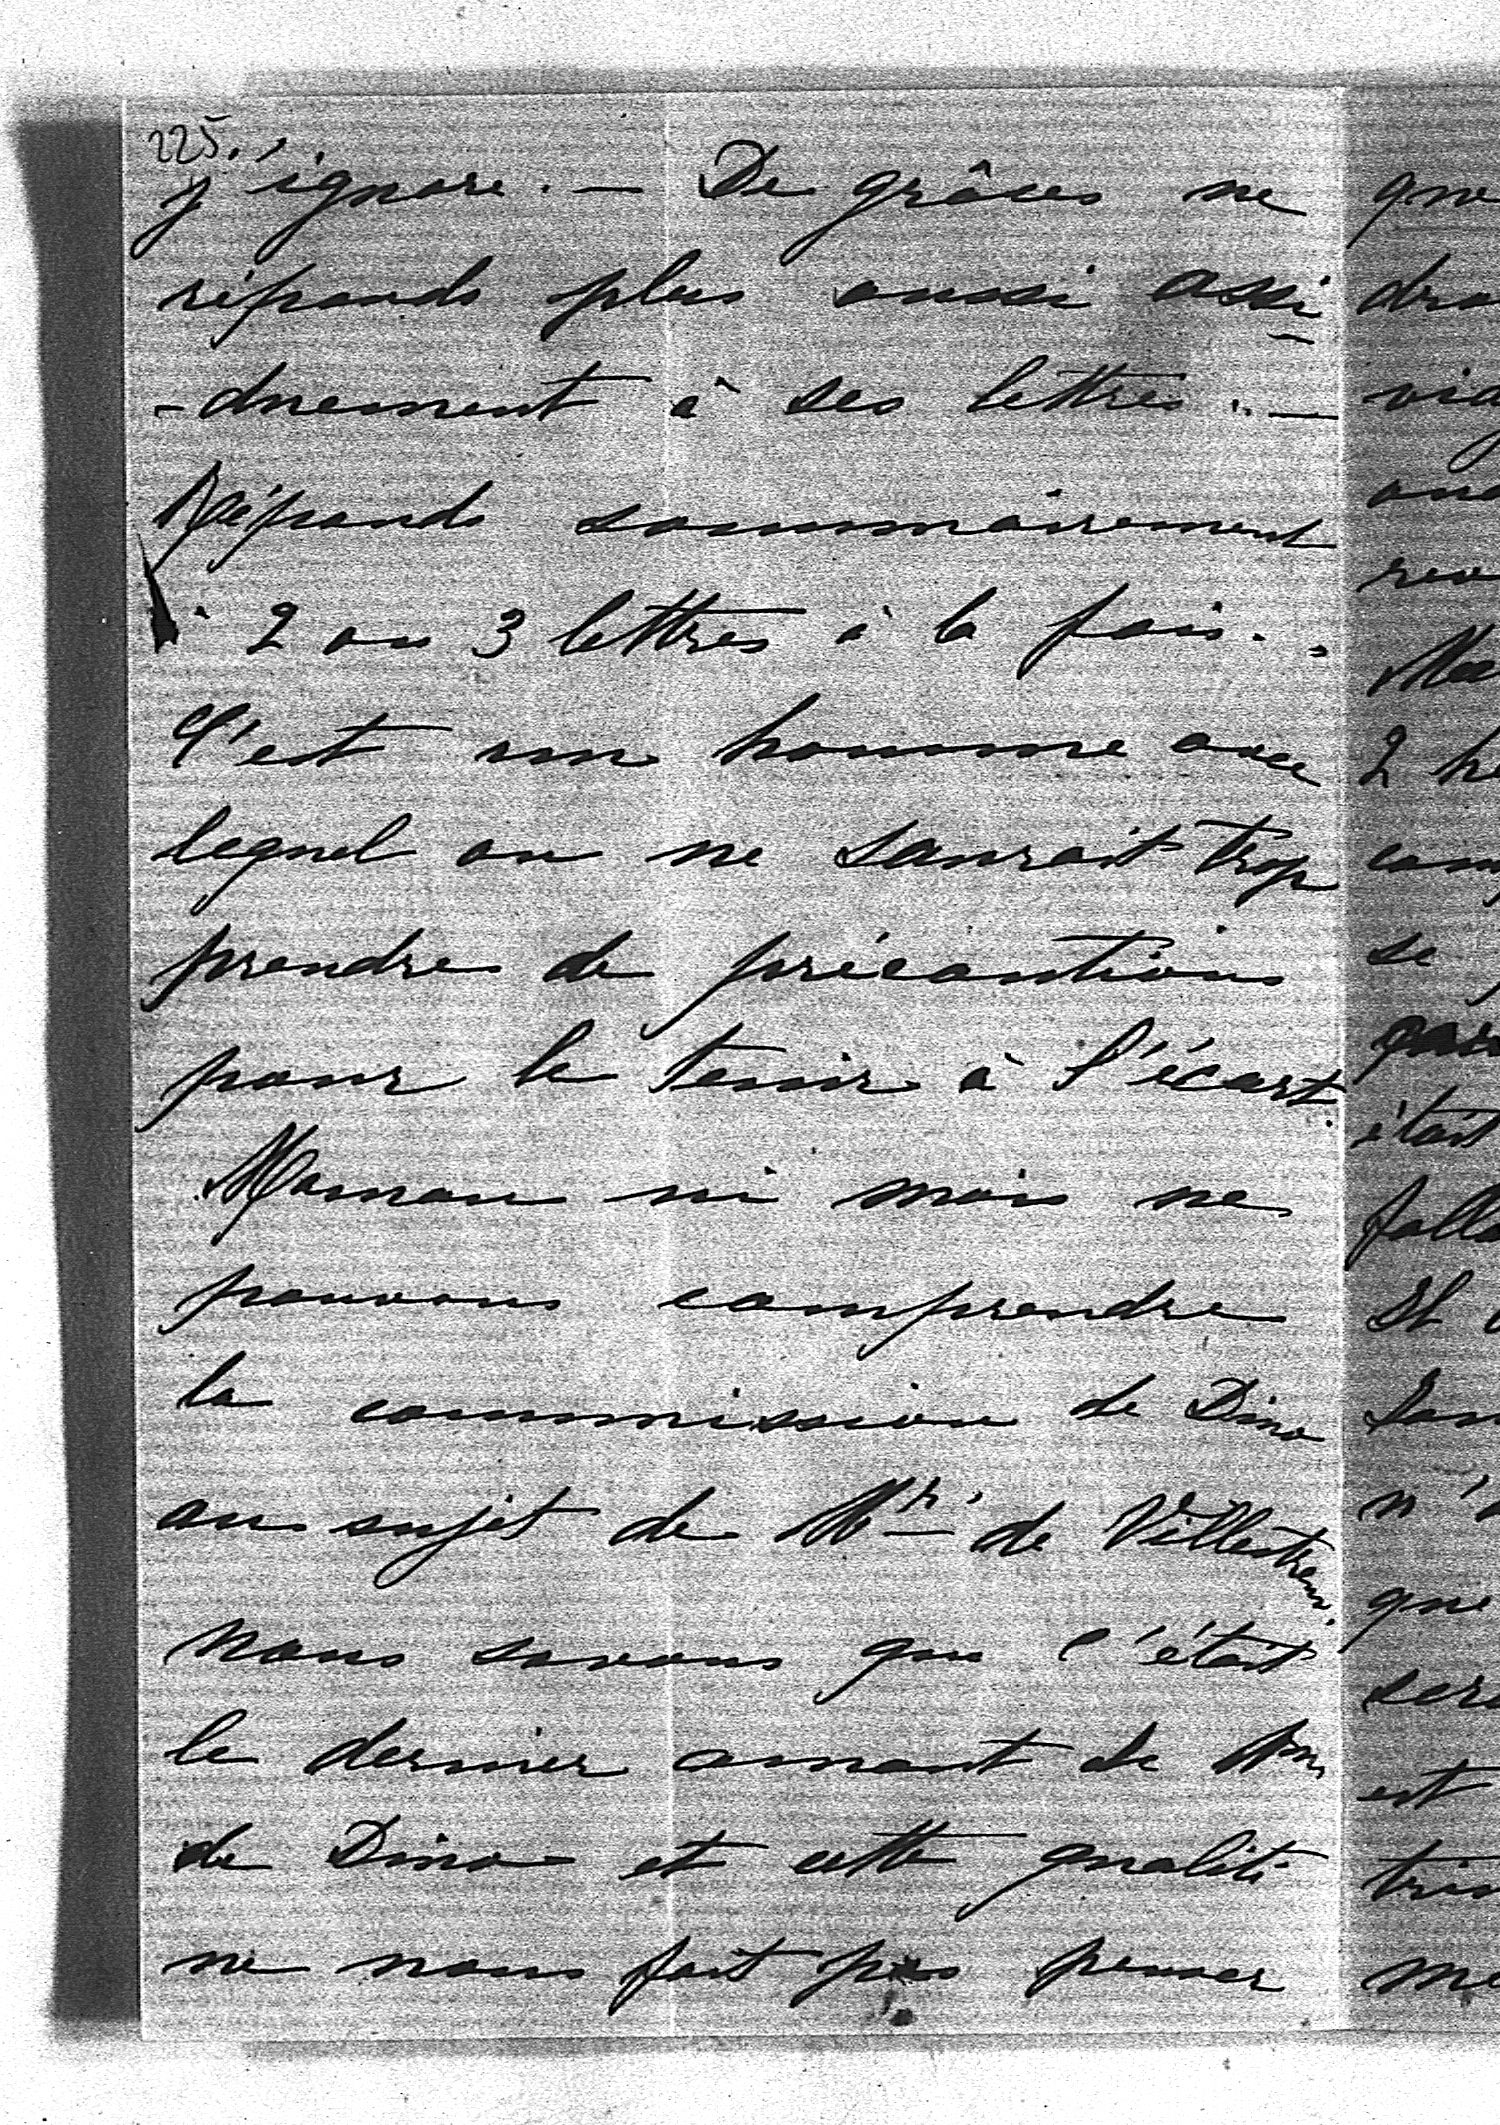 225.
j'ignore. — De grâces ne
réponds plus aussi assi
-duement à ses lettres. —
Réponds sommairement
à 2 ou 3 lettres à la fois.
C'est un homme avec
lequel on ne saurait trop
prendre de précautions
pour le tenir à l'écart.
Maman ni moi ne
pouvons comprendre
la commission de Dino
au sujet de Mr. de Villestreux.
Nous savons que c'était
le dernier amant de Mme
de Dino et cette qualité
ne nous fait pas penser
que
2
se
était
Et
n'
que
est